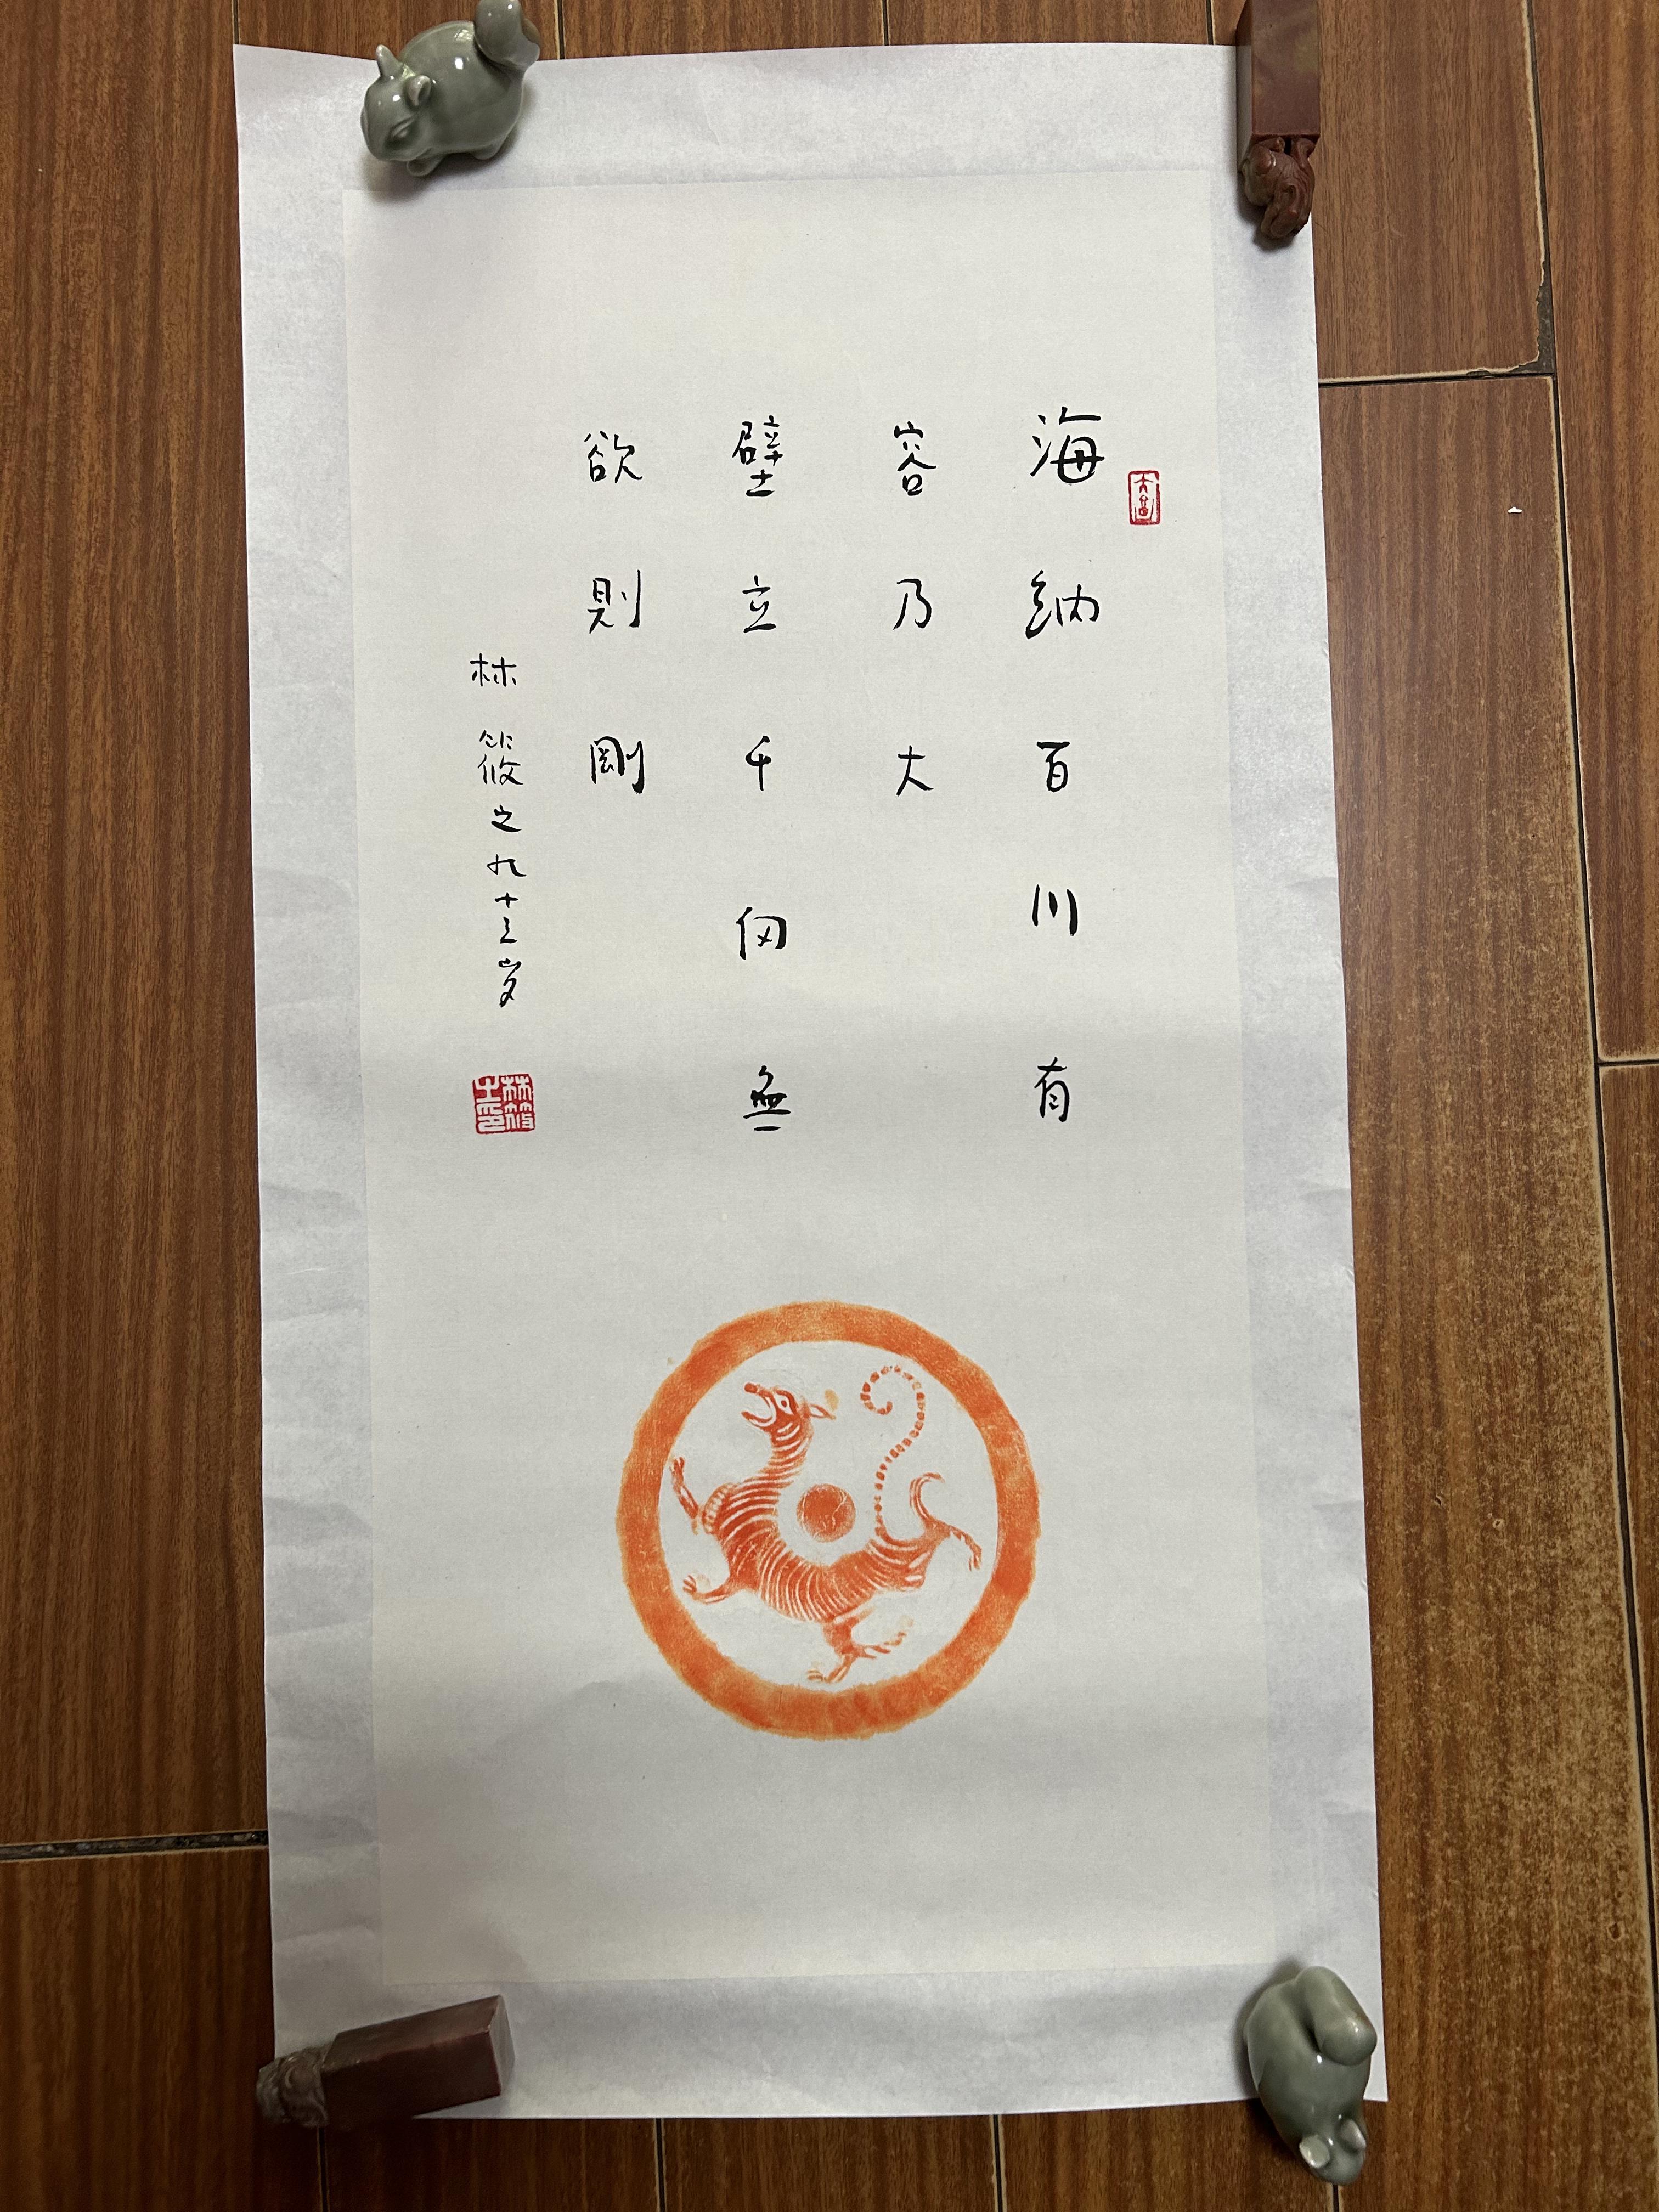 海納百川有
容乃大
壁立千仞無
欲則剛
林筱之九十三岁
林筱之印